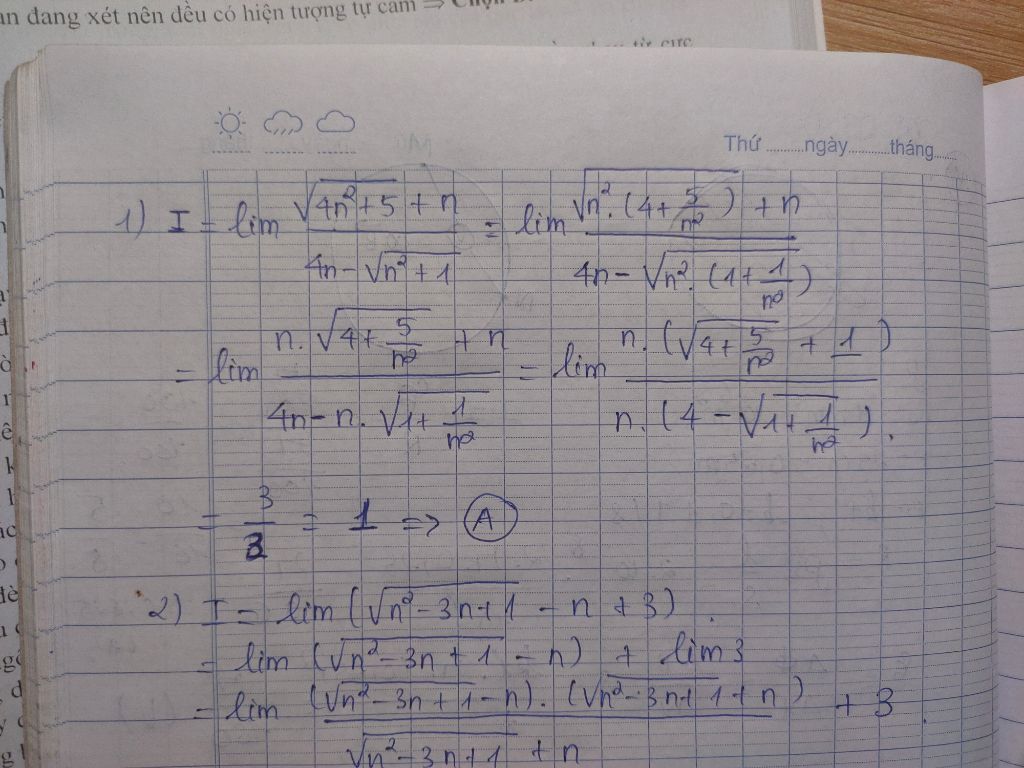 an đang xét nên đều có hiện tượng tự cảm ⇒ Chọn
Thứ ..........ngày..........tháng......
1) I = lim (√(4n² + 5) + n)/(4n - √(n² + 1)) = lim (√(n² . (4 + 5/n²)) + n)/(4n - √(n² . (1 + 1/n²)))
= lim (n . √(4 + 5/n²) + n)/(4n - n . √(1 + 1/n²)) = lim (n . (√(4 + 5/n²) + 1))/(n . (4 - √(1 + 1/n²))) .
= 3/3 = 1 => A
2) I = lim (√(n² - 3n + 1) - n + 3) .
= lim (√(n² - 3n + 1) - n) + lim 3
= lim ((√(n² - 3n + 1) - n) . (√(n² - 3n + 1) + n))/(√(n² - 3n + 1) + n) + 3 .